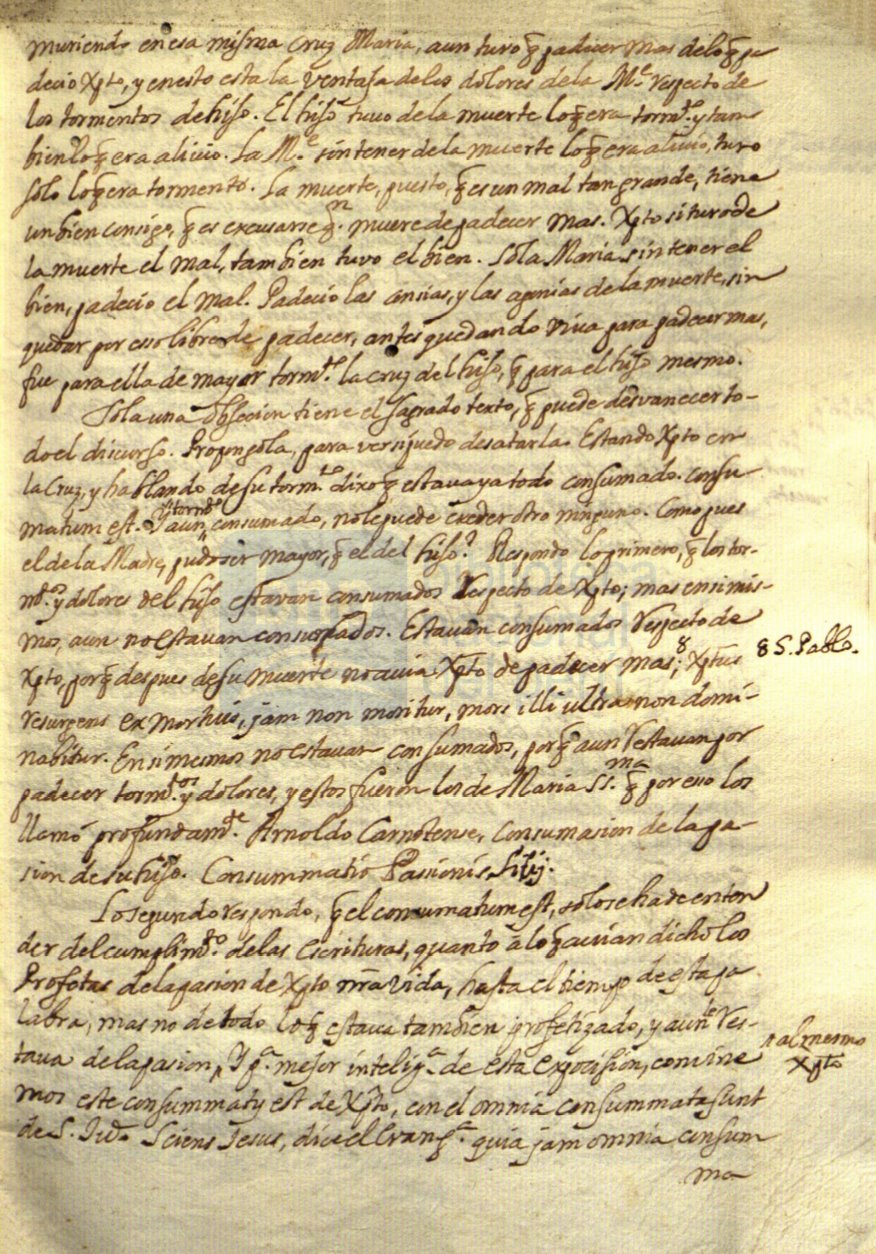 muriendo en esa misma Cruz Maria, aun tuvo q̃ padecer mas delo q̃ pa
decio Xpto, y en esto esta la ventaja delos dolores dela M.ᵉ respecto de
los tormentos de hijo. El hijo tuvo dela muerte lo q̃ era torm.ᵗᵒ y tam
bien lo q̃ era alivio. La M.ᵉ sin tener dela muerte lo q̃ era alivio, tuvo
solo lo q̃ era tormento. La muerte, puesto, q̃ es un mal tan grande, tiene
un bien consigo, q̃ es excusarse q.ⁿ muere de padecer mas. Xpto si tuvo de
la muerte el mal, tambien tuvo el bien. Sola Maria sin tener el
bien, padecio el mal. Padecio las ansias, y las agonias de la muerte, sin
quedar por esso libre de padecer, antes quedando viva para padecer mas,
fue para ella de mayor torm.ᵗᵒ la cruz del hijo, q̃ para el hijo mesmo.
Sola una objecion tiene el sagrado texto, q̃ puede desvanecer to-
do el discurso. Propongola, para ver si puedo desatarla. Estando Xpto en
la Cruz, y hablando de su torm.ᵗᵒ dixo q̃ estava ya todo consumado. consu-
matum est. I aun torm.ᵗᵒ consumado, no le puede exeder otro ninguno. Como pues
el de la Madre, pudo ser mayor, q̃ el del hijo? Respondo lo primero, q̃ los tor-
m.ᵗᵒˢ y dolores del hijo estavan consumados respecto de Xpto; mas en si mis-
mos, aun no estavan consumados. Estavan consumados respecto de
Xpto, porq̃ despues de su muerte no avia Xpto de padecer mas; 8 Xptus
resurgens ex mortuis, jam non moritur, mors illi ultra non domi-
nabitur. En si mesmos no estavan consumados, porq̃ aun restavan por
padecer torm.ᵗᵒˢ y dolores, y estos fueron los de Maria SS.ᵐᵃ q̃ por eso los
llamó profundam.ᵗᵉ Arnoldo Carnotense, Consumasion de la pa-
sion de su hijo. Consummatio Passionis Filij.
Lo segundo respondo, q̃ el consumatum est, solo se ha de enten
der del cumplim.ᵗᵒ delas escrituras, quanto a lo q̃ avian dicho los
Profetas dela pasion de Xpto nr̃a vida, hasta el tiempo de esta pa
labra, mas no de todo lo q̃ estava tambien profetizado, y aun le res-
tava dela pasion, Y p.ᵃ mejor intelig.ᵃ de esta exposision, convine
mos este consummatũ est de Xpto, con el omnia consummata sunt
de S. Juº. Sciens Jesus, dice el Evang.ᵃ quia jam omnia consum
ma
8 S. Pablo.
al mesmo
Xpto